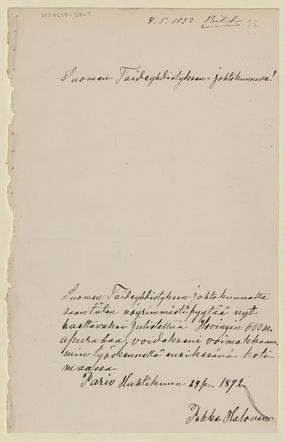 4. 5. 1892
Suomen Taideyhdistyksen johtokunnalle!
Suomen Taideyhdistyksen johtokunnalta
saan täten nöyrimmästi pyytää nyt
haettavaksi julistettua Hovingin 600 m.
apurahaa, voidakseni voimakkaam-
min työskennellä ensikesänä koti-
maassa.
Paris Huhtikuun 29 p. 1892.
Pekka Halonen